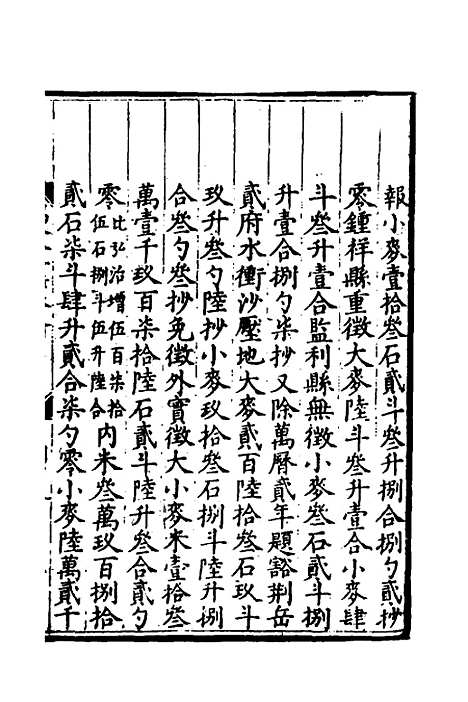 報小麥壹拾叄石貳斗叄升捌合捌勺貳抄
零鍾祥縣重徵大麥陸斗叄升壹合小麥肆
斗叄升壹合監利縣無徵小麥叄石貳斗捌
升壹合捌勺柒抄又除萬曆貳年題豁荊岳
貳府水衝沙壓地大麥貳百陸拾叄石玖斗
玖升叄勺陸抄小麥玖拾叄石捌斗陸升捌
合叄勺叄抄免徵外實徵大小麥米壹拾叄
萬壹千玖百柒拾陸石貳斗陸升叄合貳勺
零比弘治增伍百柒拾伍石捌斗伍升陸合內米叄萬玖百捌拾
貳石柒斗肆升貳合柒勺零小麥陸萬貳千